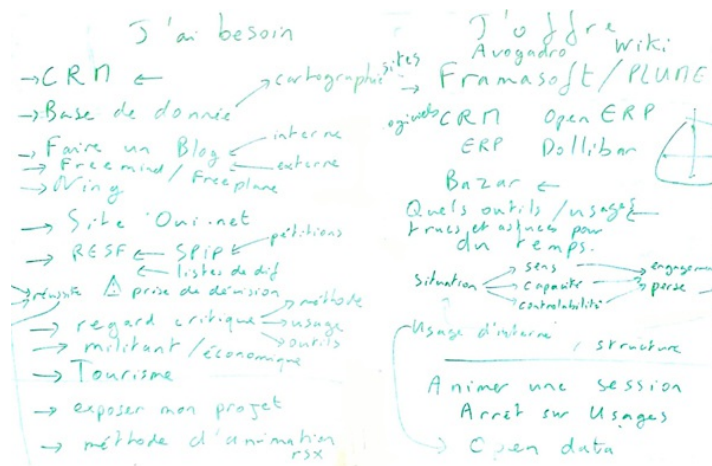 J'ai besoin
→ CRM ←
→ Base de donnée → cartographie
→ Faire un Blog ← interne
→ Freemind / Freeplane ← externe
→ Ning
→ Site Oui.net
→ RESF ← SPIP ← pétitions
← listes de dif
réussite ⚠ prise de décision
→ regard critique → méthode
→ usage
→ outils
→ militant / économique
→ Tourisme
→ exposer mon projet
→ méthode d'animation
rsx
J'offre
Avogadro Wiki
sites → Framasoft / PLUME
logiciels CRM Open ERP
ERP Dollibar
Bazar ←
Quels outils / usages ←
trucs et astuces pour
du temps.
Situation → sens → engagement
→ capacité → perse
→ controlabilité
Usage d'interne
/ structure
Animer une session
Arrêt sur Usages
→ Open data